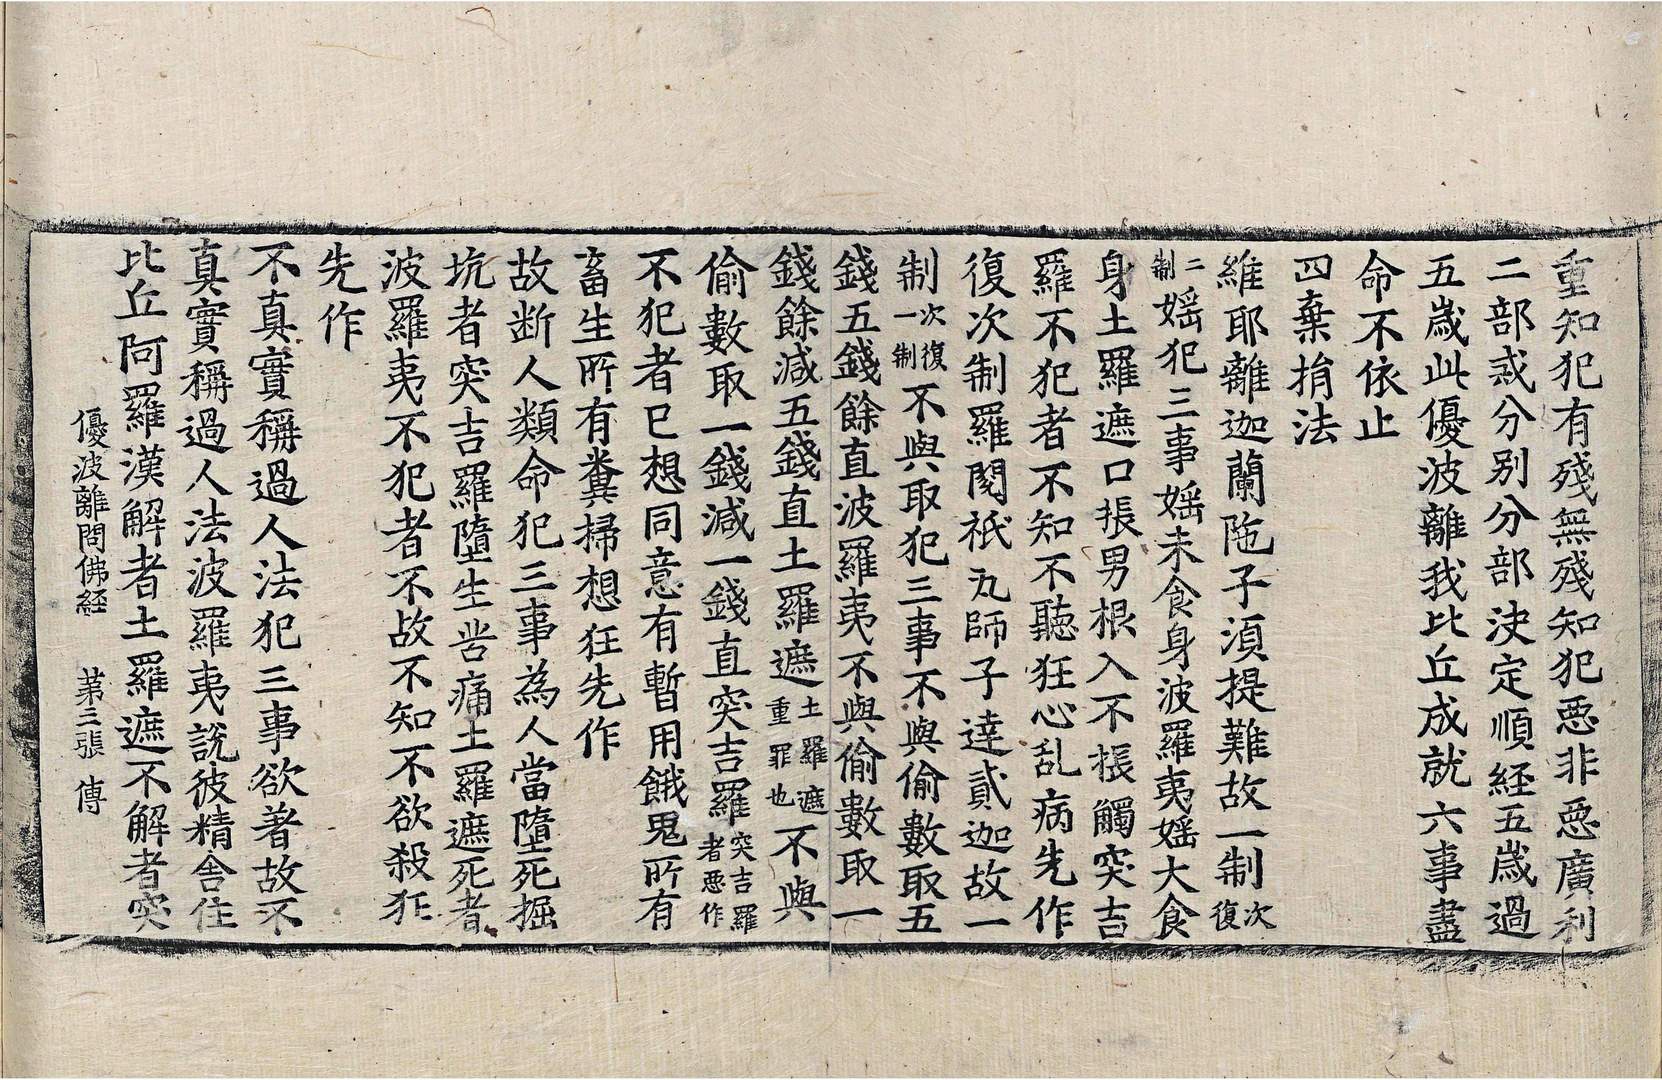 重知犯有殘無殘知犯惡非惡廣利
二部戒分別分部決定順経五歲過
五歲此優波離我比丘成就六事盡
命不依止
四棄捐法
維耶離迦蘭陁子湏提難故一制次復
二制婬犯三事婬未食身波羅夷婬大食
身土羅遮口振男根入不振觸突吉
羅不犯者不知不聽狂心乱病先作
復次制羅閱祇瓦師子達貳迦故一
制次復一制不與取犯三事不與偷數取五
錢五錢餘直波羅夷不與偷數取一
錢餘減五錢直土羅遮土羅遮重罪也不與
偷數取一錢減一錢直突吉羅突吉羅者惡作
不犯者已想同意有暫用餓鬼所有
畜生所有糞掃想狂先作
故断人類命犯三事為人當墮死掘
坑者突吉羅墮生苦痛土羅遮死者
波羅夷不犯者不故不知不欲殺狂
先作
不真實稱過人法犯三事欲著故不
真實稱過人法波羅夷說彼精舍住
比丘阿羅漢解者土羅遮不解者突
優波離問佛経 苐三張 傅